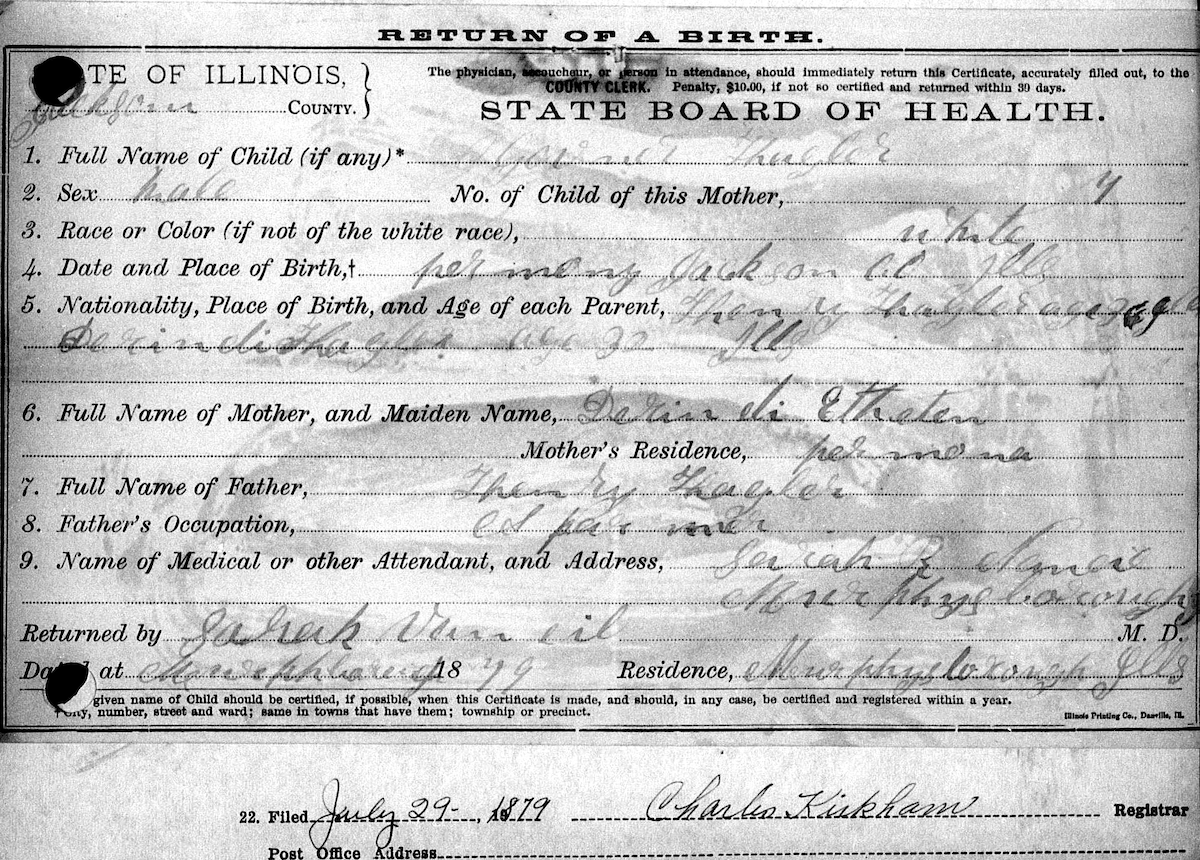 RETURN OF A BIRTH.
TE OF ILLINOIS,
Jackson COUNTY.
The physician, accoucheur, or person in attendance, should immediately return this Certificate, accurately filled out, to the
COUNTY CLERK. Penalty, $10.00, if not so certified and returned within 30 days.
STATE BOARD OF HEALTH.
1. Full Name of Child (if any)* Hagler
2. Sex Male No. of Child of this Mother, 7
3. Race or Color (if not of the white race), white
4. Date and Place of Birth,† per mony Jackson co Ills
5. Nationality, Place of Birth, and Age of each Parent, Thenry Thagler age
Dorindi Thagler age 30 Ills
6. Full Name of Mother, and Maiden Name, Dorin di Etheten
Mother's Residence, per mona
7. Full Name of Father, Thenry Thagler
8. Father's Occupation,
9. Name of Medical or other Attendant, and Address,
Murphysborough
Returned by Sarah Van cil M. D.
Dated at 1879 Residence, Murphysborough Ills
given name of Child should be certified, if possible, when this Certificate is made, and should, in any case, be certified and registered within a year.
† City, number, street and ward; same in towns that have them; township or precinct.
Illinois Printing Co., Danville, Ill.
22. Filed July 29-, 1879 Charles Kirkham Registrar
Post Office Address